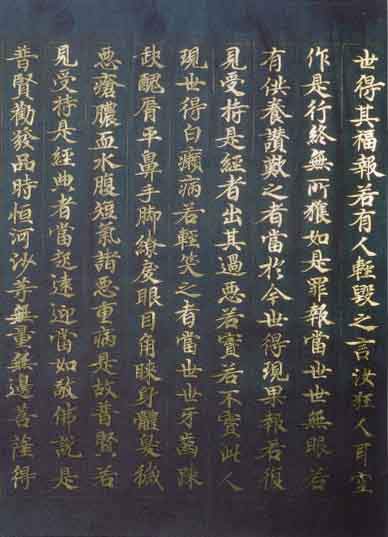 世得其福報若有人輕毀之言汝狂人耳空
作是行終無所獲如是罪報當世世無眼若
有供養讚歎之者當於今世得現果報若復
見受持是經者出其過惡若實若不實此人
現世得白癩病若輕笑之者當世世牙齒踈
缺醜脣平鼻手脚繚戾眼目角睞身體臭穢
惡瘡膿血水腹短氣諸惡重病是故普賢若
見受持是經典者當起遠迎當如敬佛說是
普賢勸發品時恒河沙等無量無邊菩薩得